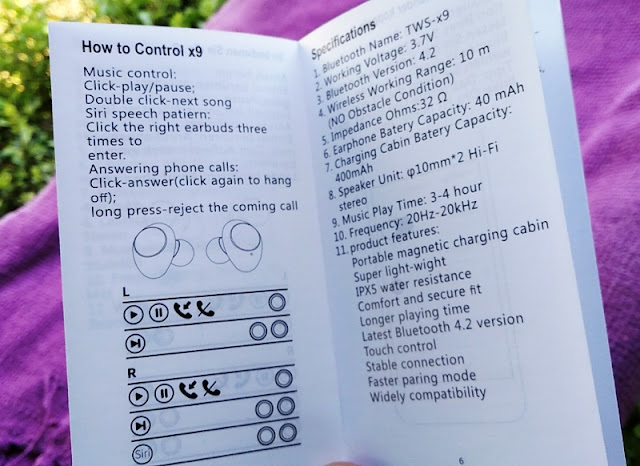 How to Control x9
Music control:
Click-play/pause;
Double click-next song
Siri speech patiern:
Click the right earbuds three
times to
enter.
Answering phone calls:
Click-answer(click again to hang
off);
long press-reject the coming call
L
R
Siri
Specifications
1. Bluetooth Name: TWS-x9
2. Working Voltage: 3.7V
3. Bluetooth Version: 4.2
4. Wireless Working Range: 10 m
(NO Obstacle Condition)
5. Impedance Ohms:32 Ω
6. Earphone Batery Capacity: 40 mAh
7. Charging Cabin Batery Capacity:
400mAh
8. Speaker Unit: φ10mm*2 Hi-Fi
stereo
9. Music Play Time: 3-4 hour
10. Frequency: 20Hz-20kHz
11. product features:
Portable magnetic charging cabin
Super light-wight
IPX5 water resistance
Comfort and secure fit
Longer playing time
Latest Bluetooth 4.2 version
Touch control
Stable connection
Faster paring mode
Widely compatibility
6